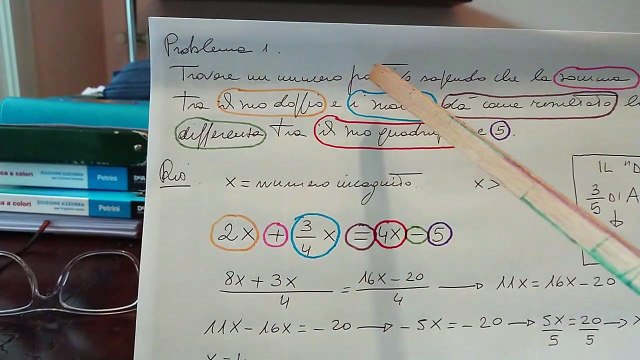 Problema 1.
Trovare un numero sapendo che la somma
tra il suo doppio e i suoi dà come risultato l
differenza tra il suo quadruplo e 5.
Dis: x = numero incognito. x >
IL "D
3/5 DI A
↓
2x + 3/4 x = 4x = 5
(8x + 3x)/4 = (16x - 20)/4 → 11x = 16x - 20
11x - 16x = -20 → -5x = -20 → 5x/5 = 20/5 → x
a colori EDIZIONE AZZURRA Petrini
a colori EDIZIONE AZZURRA Petrini